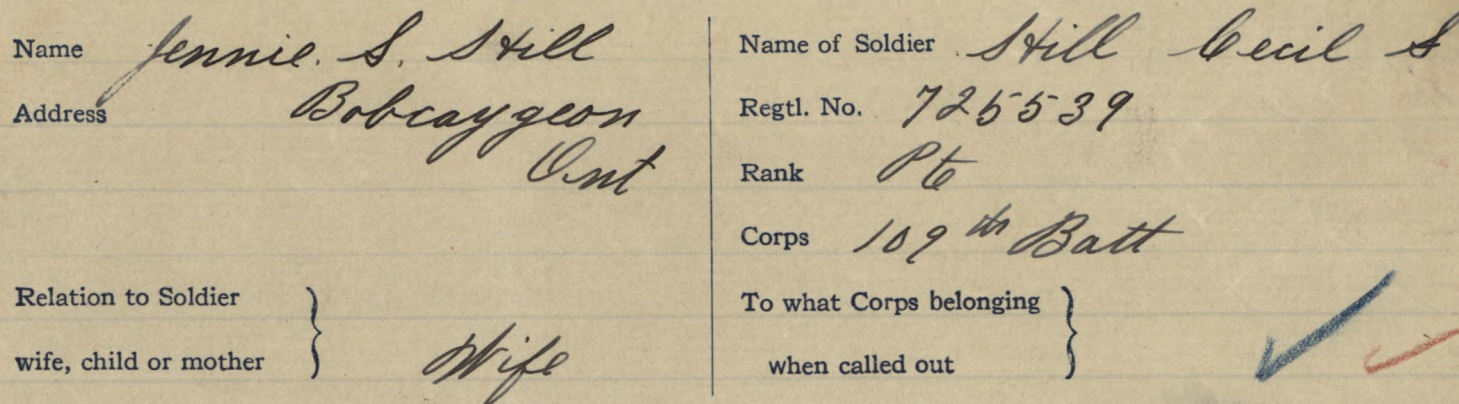 Name Jennie. S. Still
Address Bobcaygeon
Ont
Relation to Soldier
wife, child or mother } Wife
Name of Soldier Still Cecil S
Regtl. No. 725539
Rank Pte
Corps 109th Batt
To what Corps belonging
when called out }